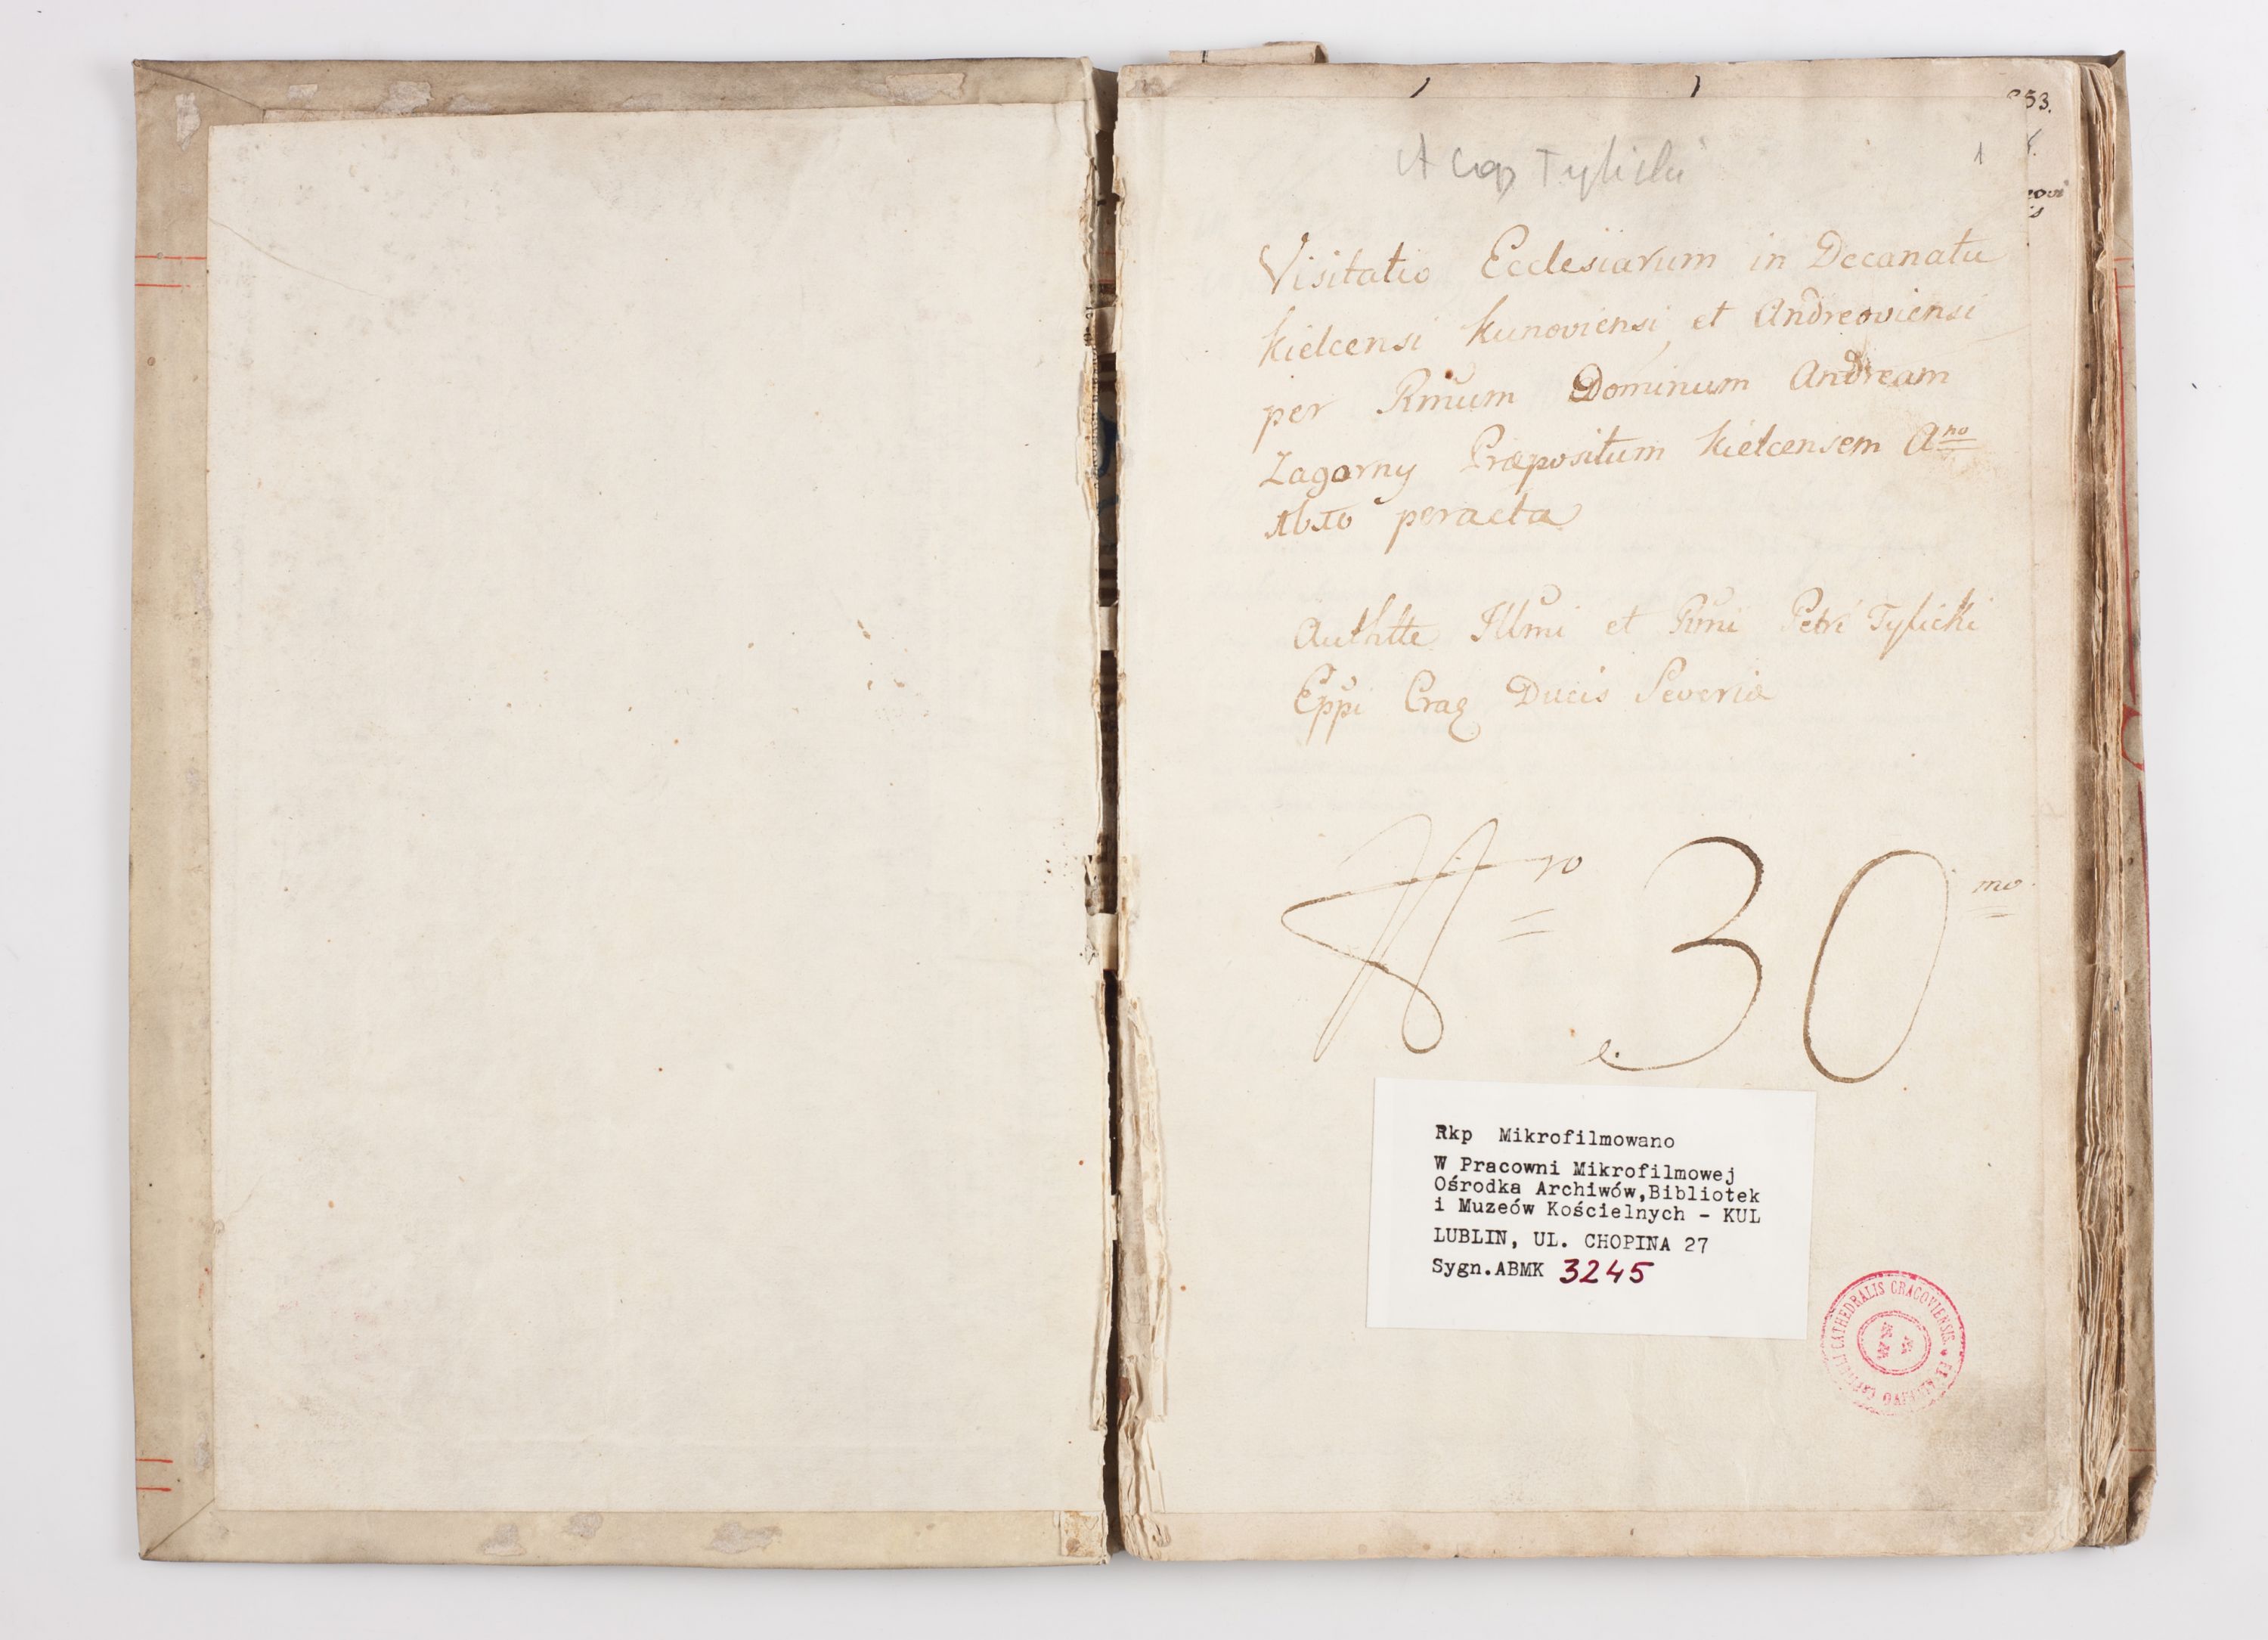 53.
1
Tylicki
Visitatio Ecclesiarum in Decanatu
Kielcensi Kunoviensi, et Andreoviensi
per Rmum Dominum Andream
Zagorny Præpositum Kielcensem Ano
1610 peracta
Authtte Illmi et Rmi Petri Tylicki
Eppi Crac Ducis Severiæ
Nro 30mo
Rkp Mikrofilmowano
W Pracowni Mikrofilmowej
Ośrodka Archiwów,Bibliotek
i Muzeów Kościelnych - KUL
LUBLIN, UL. CHOPINA 27
Sygn.ABMK 3245
CATHEDRALIS CRACOVIENSIS